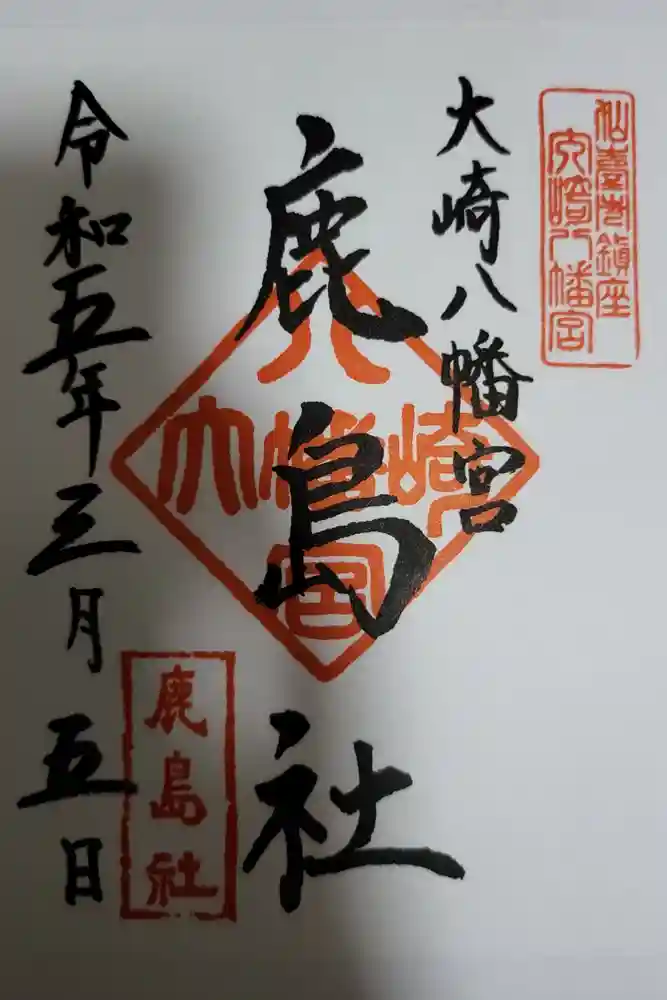 仙臺市鎮座
大崎八幡宮
大崎八幡宮
鹿島社
八
大幡崎
宮
鹿島社
令和五年三月五日